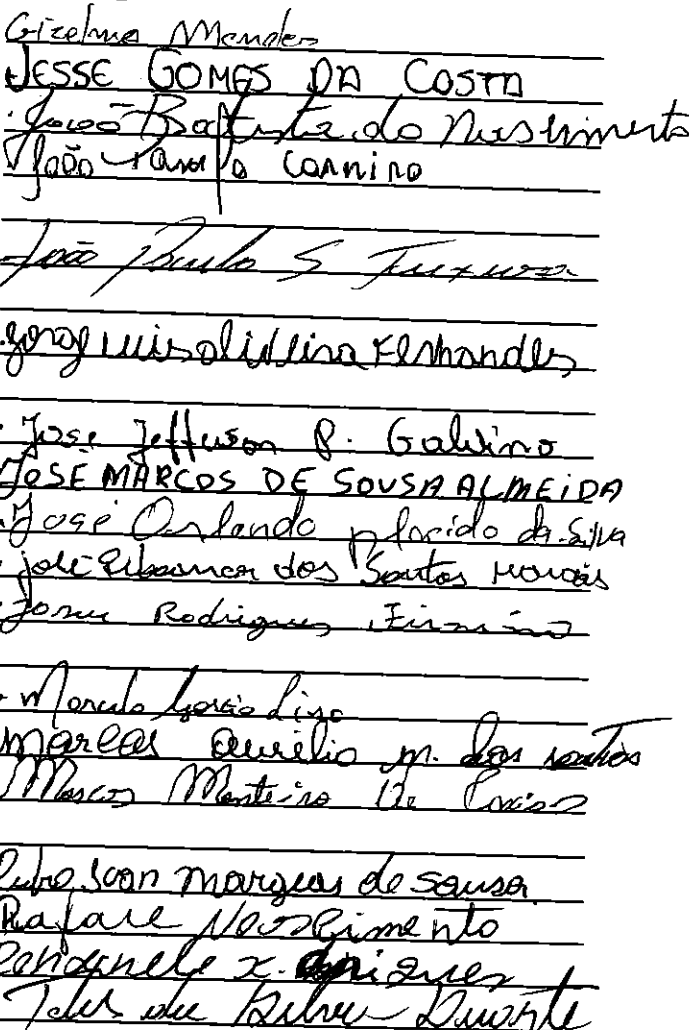 Gizelma Mendes
JESSE GOMES DA COSTA
João Baptista do Nascimento
João Carniro
João Paulo S Teixeira
Jorge Luis Oliveira Fernandes
José Jefferson P. Galvino
JOSÉ MARCOS DE SOUSA ALMEIDA
José Orlando placido da Silva
José dos Santos Morais
Josue Rodrigues Firmino
Marcelo
Marcos Aurélio M. dos Santos
Marcos Monteiro De
Pedro Ivan Marques de Sousa
Rafael Nascimento
x.
Duarte